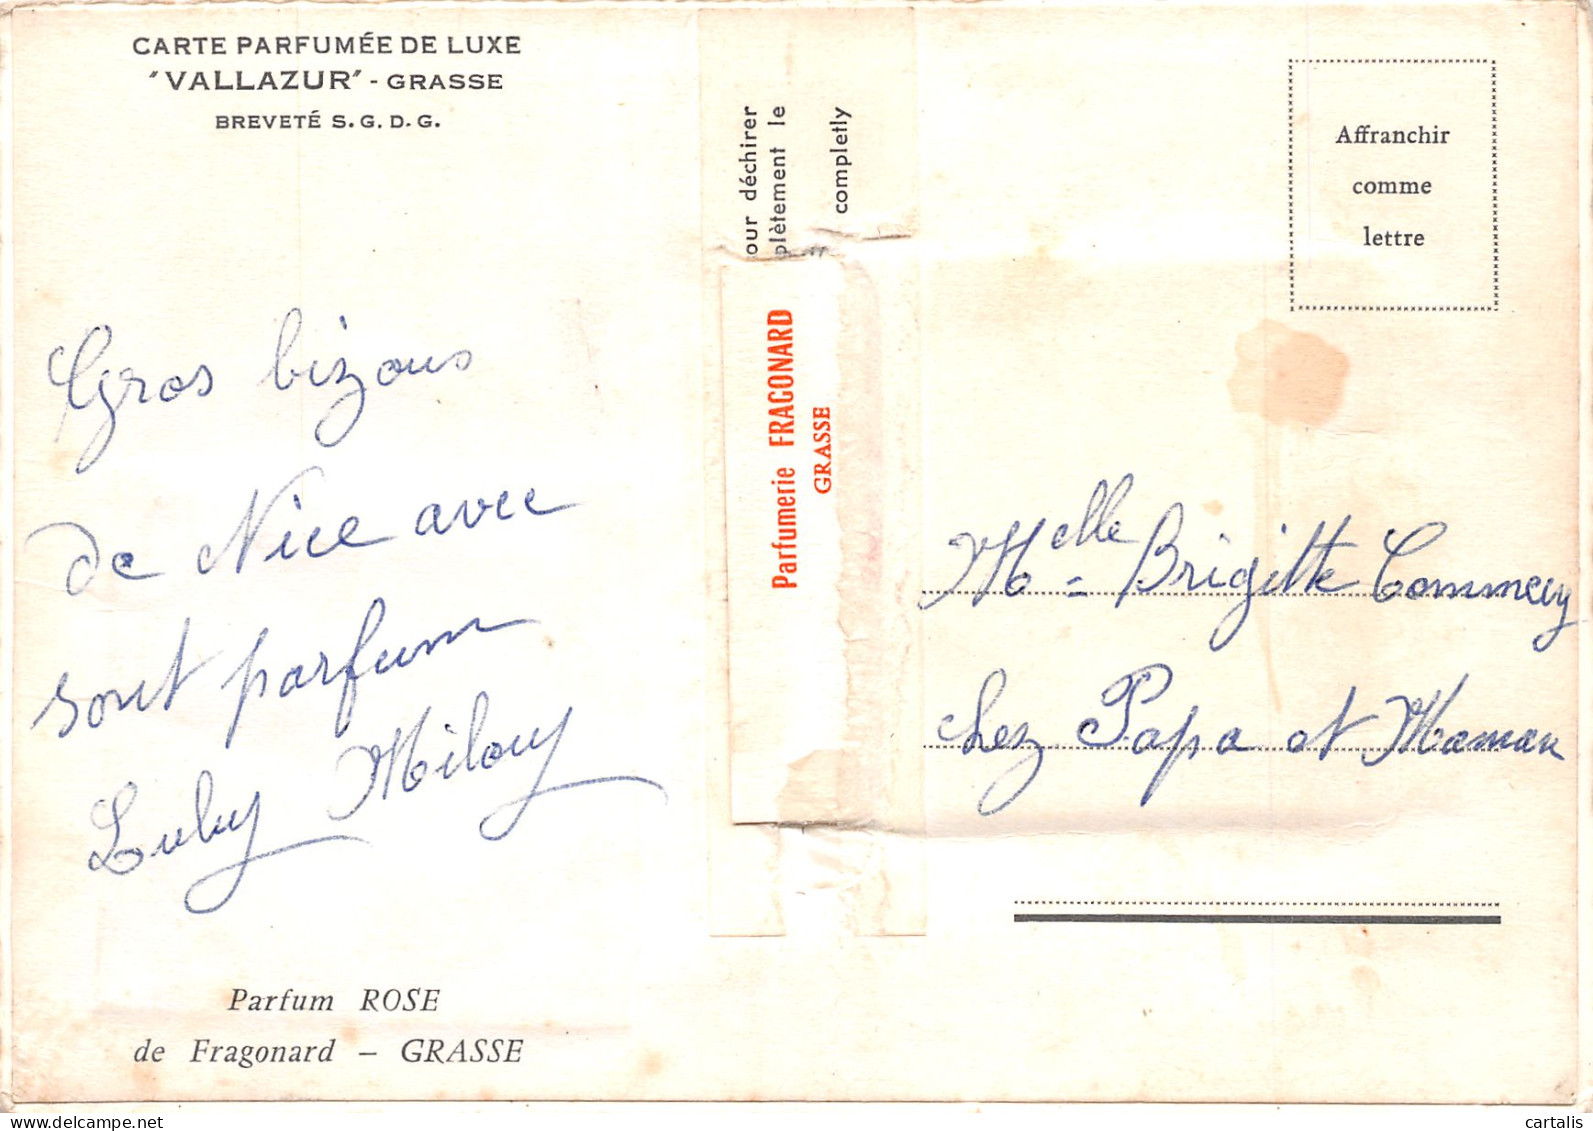 CARTE PARFUMÉE DE LUXE
"VALLAZUR" - GRASSE
BREVETÉ S.G.D.G.
Gros bizous
de Nice avec
sont parfum
Luluy Milouy
Parfum ROSE
de Fragonard – GRASSE
our déchirer
plètement le
completly
Parfumerie FRAGONARD
GRASSE
Affranchir
comme
lettre
Melle Brigitte
chez Papa et Maman
cartalis